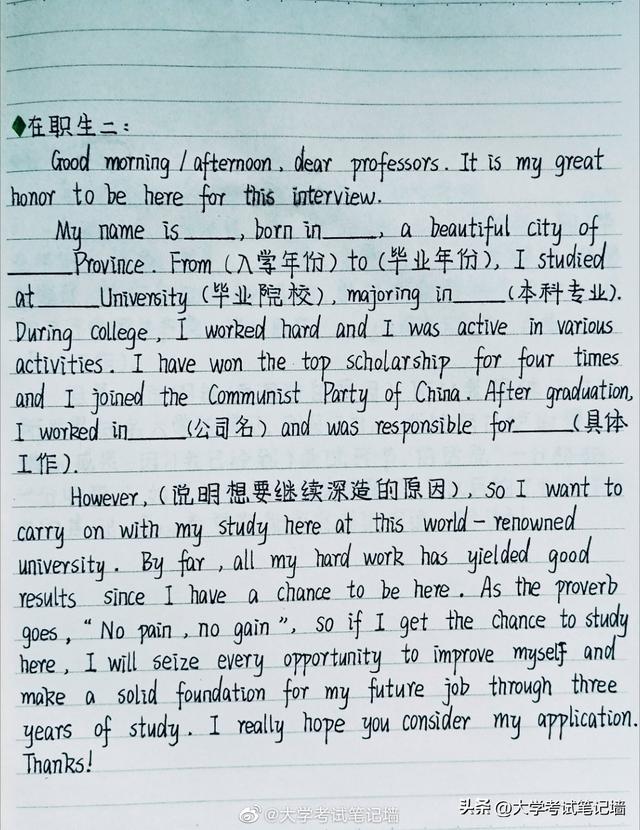 ◆在职生二:
Good morning / afternoon, dear professors. It is my great
honor to be here for this interview.
My name is ____, born in____, a beautiful city of
____Province. From (入学年份) to (毕业年份), I studied
at ____University (毕业院校), majoring in____(本科专业).
During college, I worked hard and I was active in various
activities. I have won the top scholarship for four times
and I joined the Communist Party of China. After graduation,
I worked in____(公司名) and was responsible for____(具体
工作).
However, (说明想要继续深造的原因), so I want to
carry on with my study here at this world-renowned
university. By far, all my hard work has yielded good
results since I have a chance to be here. As the proverb
goes, "No pain, no gain", so if I get the chance to study
here, I will seize every opportunity to improve myself and
make a solid foundation for my future job through three
years of study. I really hope you consider my application.
Thanks!
@大学考试笔记墙
头条 @大学考试笔记墙